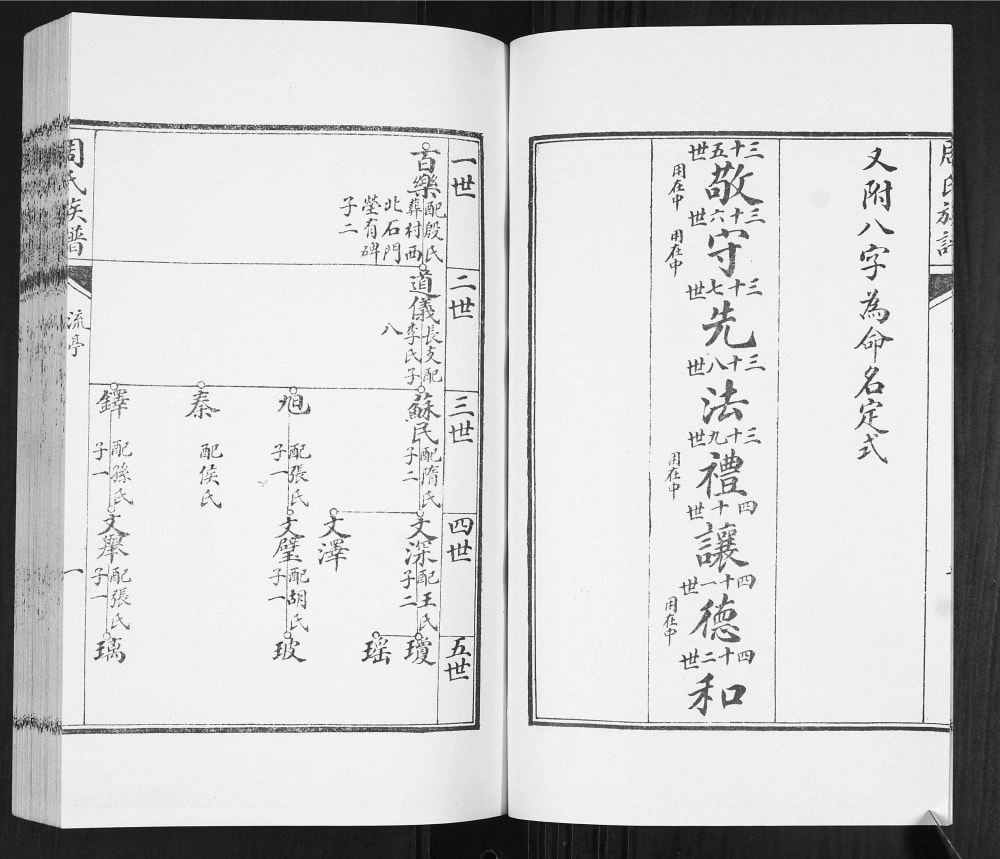 又附八字為命名定式
三十五世
敬
用在中
三十六世
守
用在中
三十七世
先
三十八世
法
三十九世
禮
用在中
四十世
讓
四十一世
德
用在中
四十二世
和
周氏族譜
流亭
一
一世
二世
三世
四世
五世
百樂
配殷氏
葬村西
北石門
塋有碑
子二
道儀
長支配
李氏子
八
蘇民
配隋氏
子二
文深
配王氏
子二
瓊
瑶
文澤
配張氏
子一
文璧
配胡氏
子一
玻
秦
配侯氏
鐸
配孫氏
子一
文舉
配張氏
子一
璃